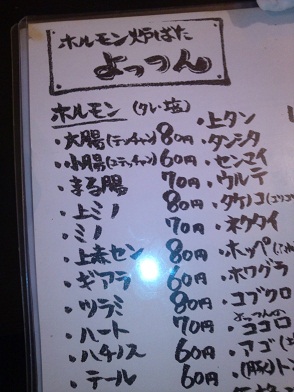 ホルモン炉ばた
よっつん
ホルモン (タレ・塩)
・大腸(テッチャン) 80円
・小腸(コテッチャン) 60円
・まる腸 70円
・上ミノ 80円
・ミノ 70円
・上赤セン 80円
・ギアラ 60円
・ツラミ 80円
・ハート 70円
・ハチノス 60円
・テール 60円
・上タン
・タンシタ
・センマイ
・ウルテ
・タケノコ(コリコ
・ネクタイ
・ホッペ
・ホワグラ
・コブクロ
よっつんの
・ココロ
・アゴ
・(豚)ト